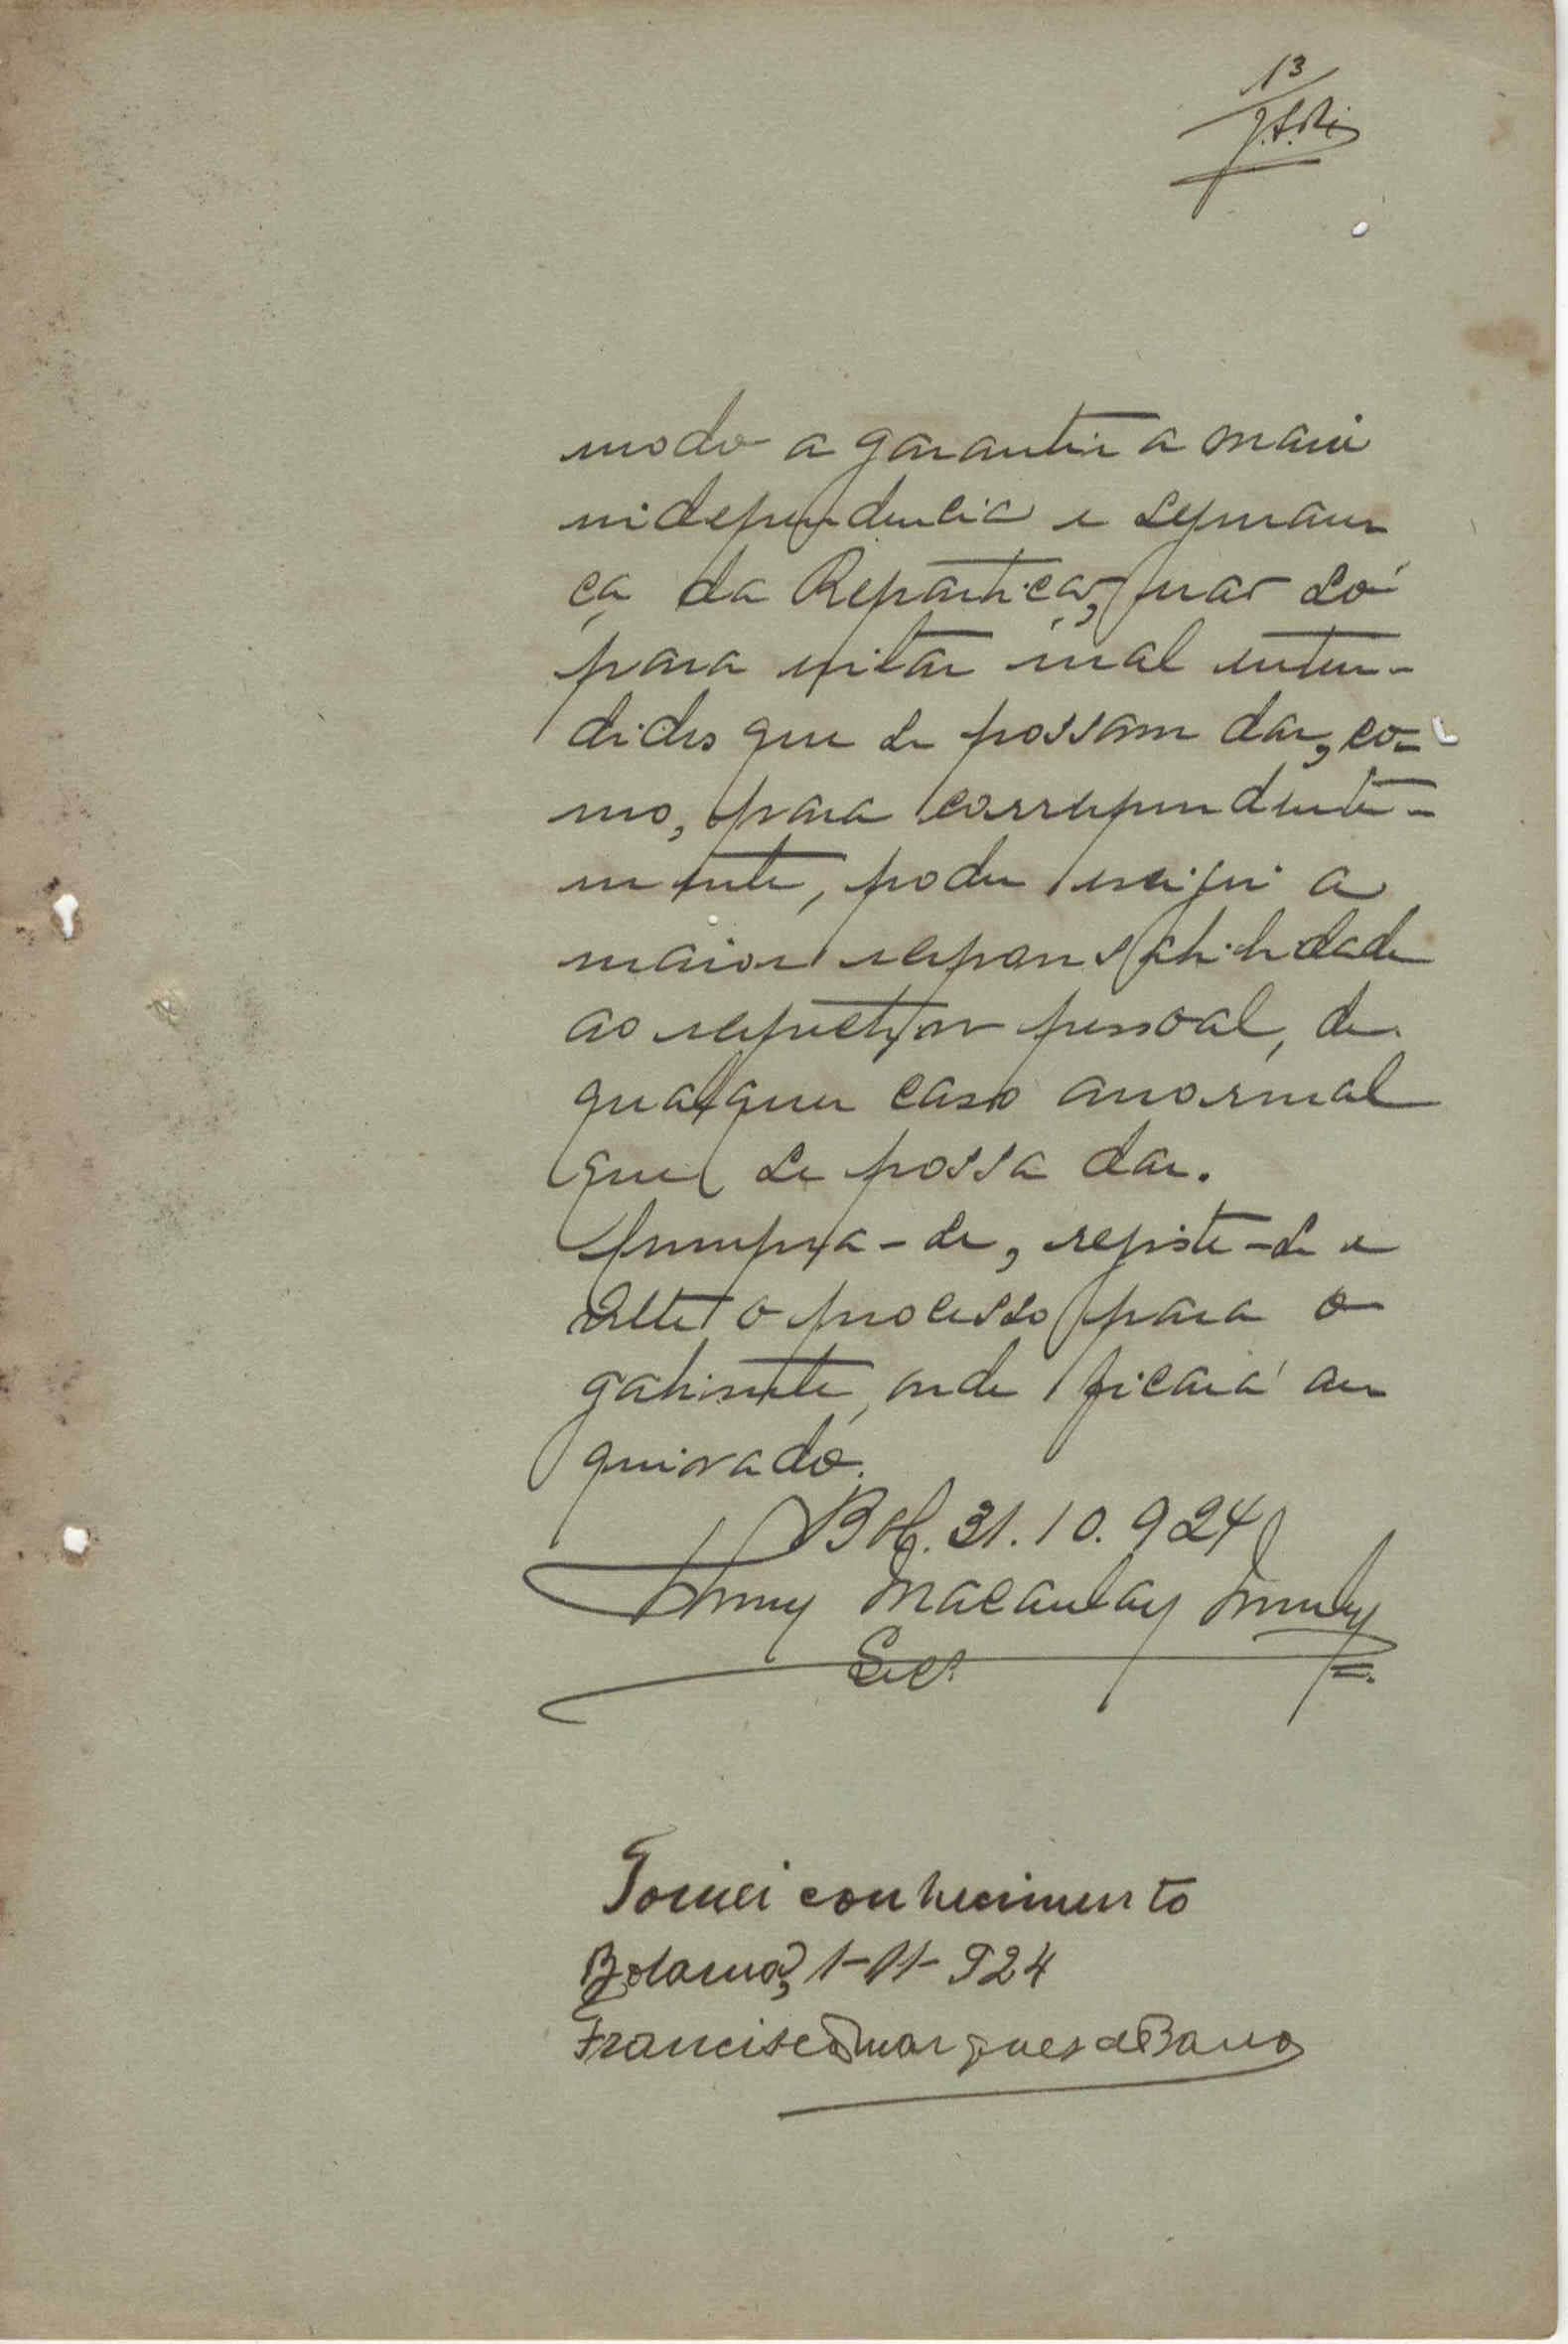 13
modo a garantir a maior
independencia e seguran
ça da Repartição, não só
para evitar mal enten-
didos que se possam dar, co-
mo, para correspondente-
mente, poder exigir a
maior responsabilidade
ao respectivo pessoal, de
qualquer caso anormal
que se possa dar.
Cumpra-se, registe-se e
volte o processo para o
gabinete, onde ficará ar
quivado.
Bol. 31.10.924
Macaulay
Tomei conhecimento
Bolama, 1-11-924
Francisco Marques de Barros